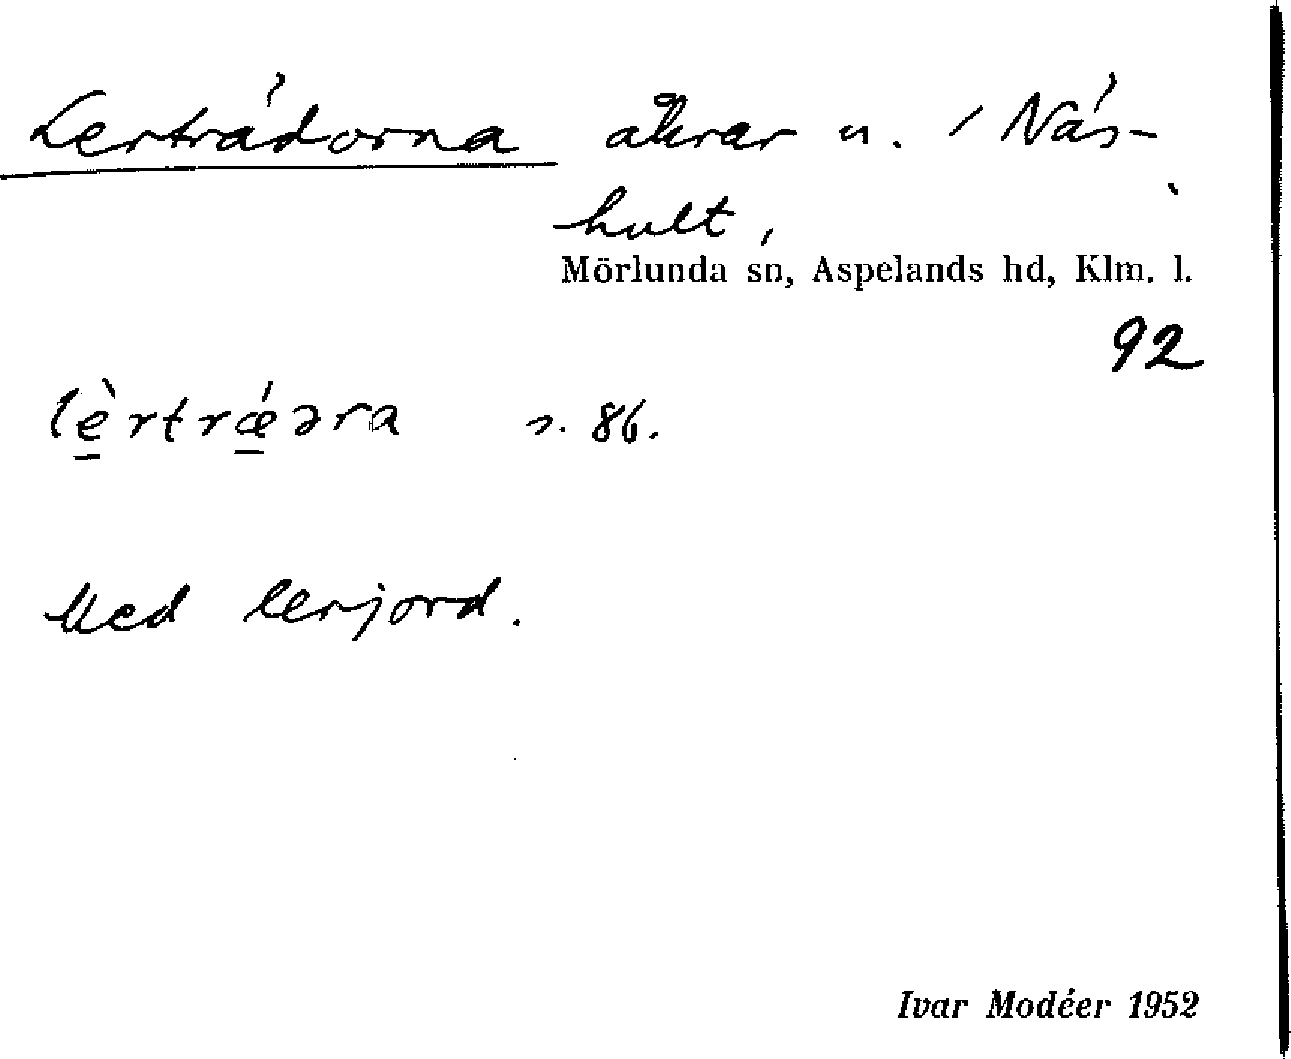 Lerträdorna åkrar n. / Näs-
hult,
Mörlunda sn, Aspelands hd, Klm. l.
92
lè̱rtrǽ̱əra s. 86.
Med lerjord.
Ivar Modéer 1952